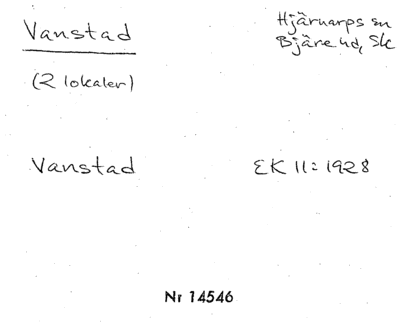 Vanstad
Hjärnarps sn
Bjäre hd, Sk
(2 lokaler)
Vanstad
EK 11:1928
Nr 14546